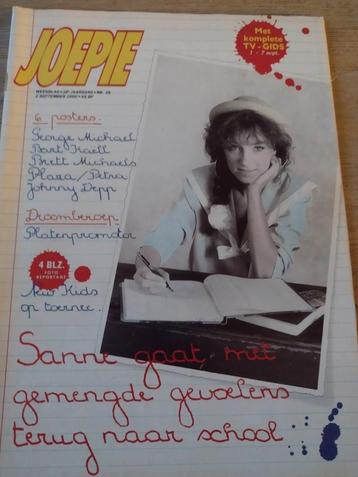 JOEPIE
Met
komplete
TV-GIDS
1 - 7 sept.
6 posters:
George Michael
Bart Kaëll
Brett Michaels
Plaza/Petra
Johnny Depp
Droomberoep
Platenpromotor
4 BLZ.
FOTO
REPORTAGE
New Kids
op toernee.
Sanne gaat met
gemengde gevoelens
terug naar school